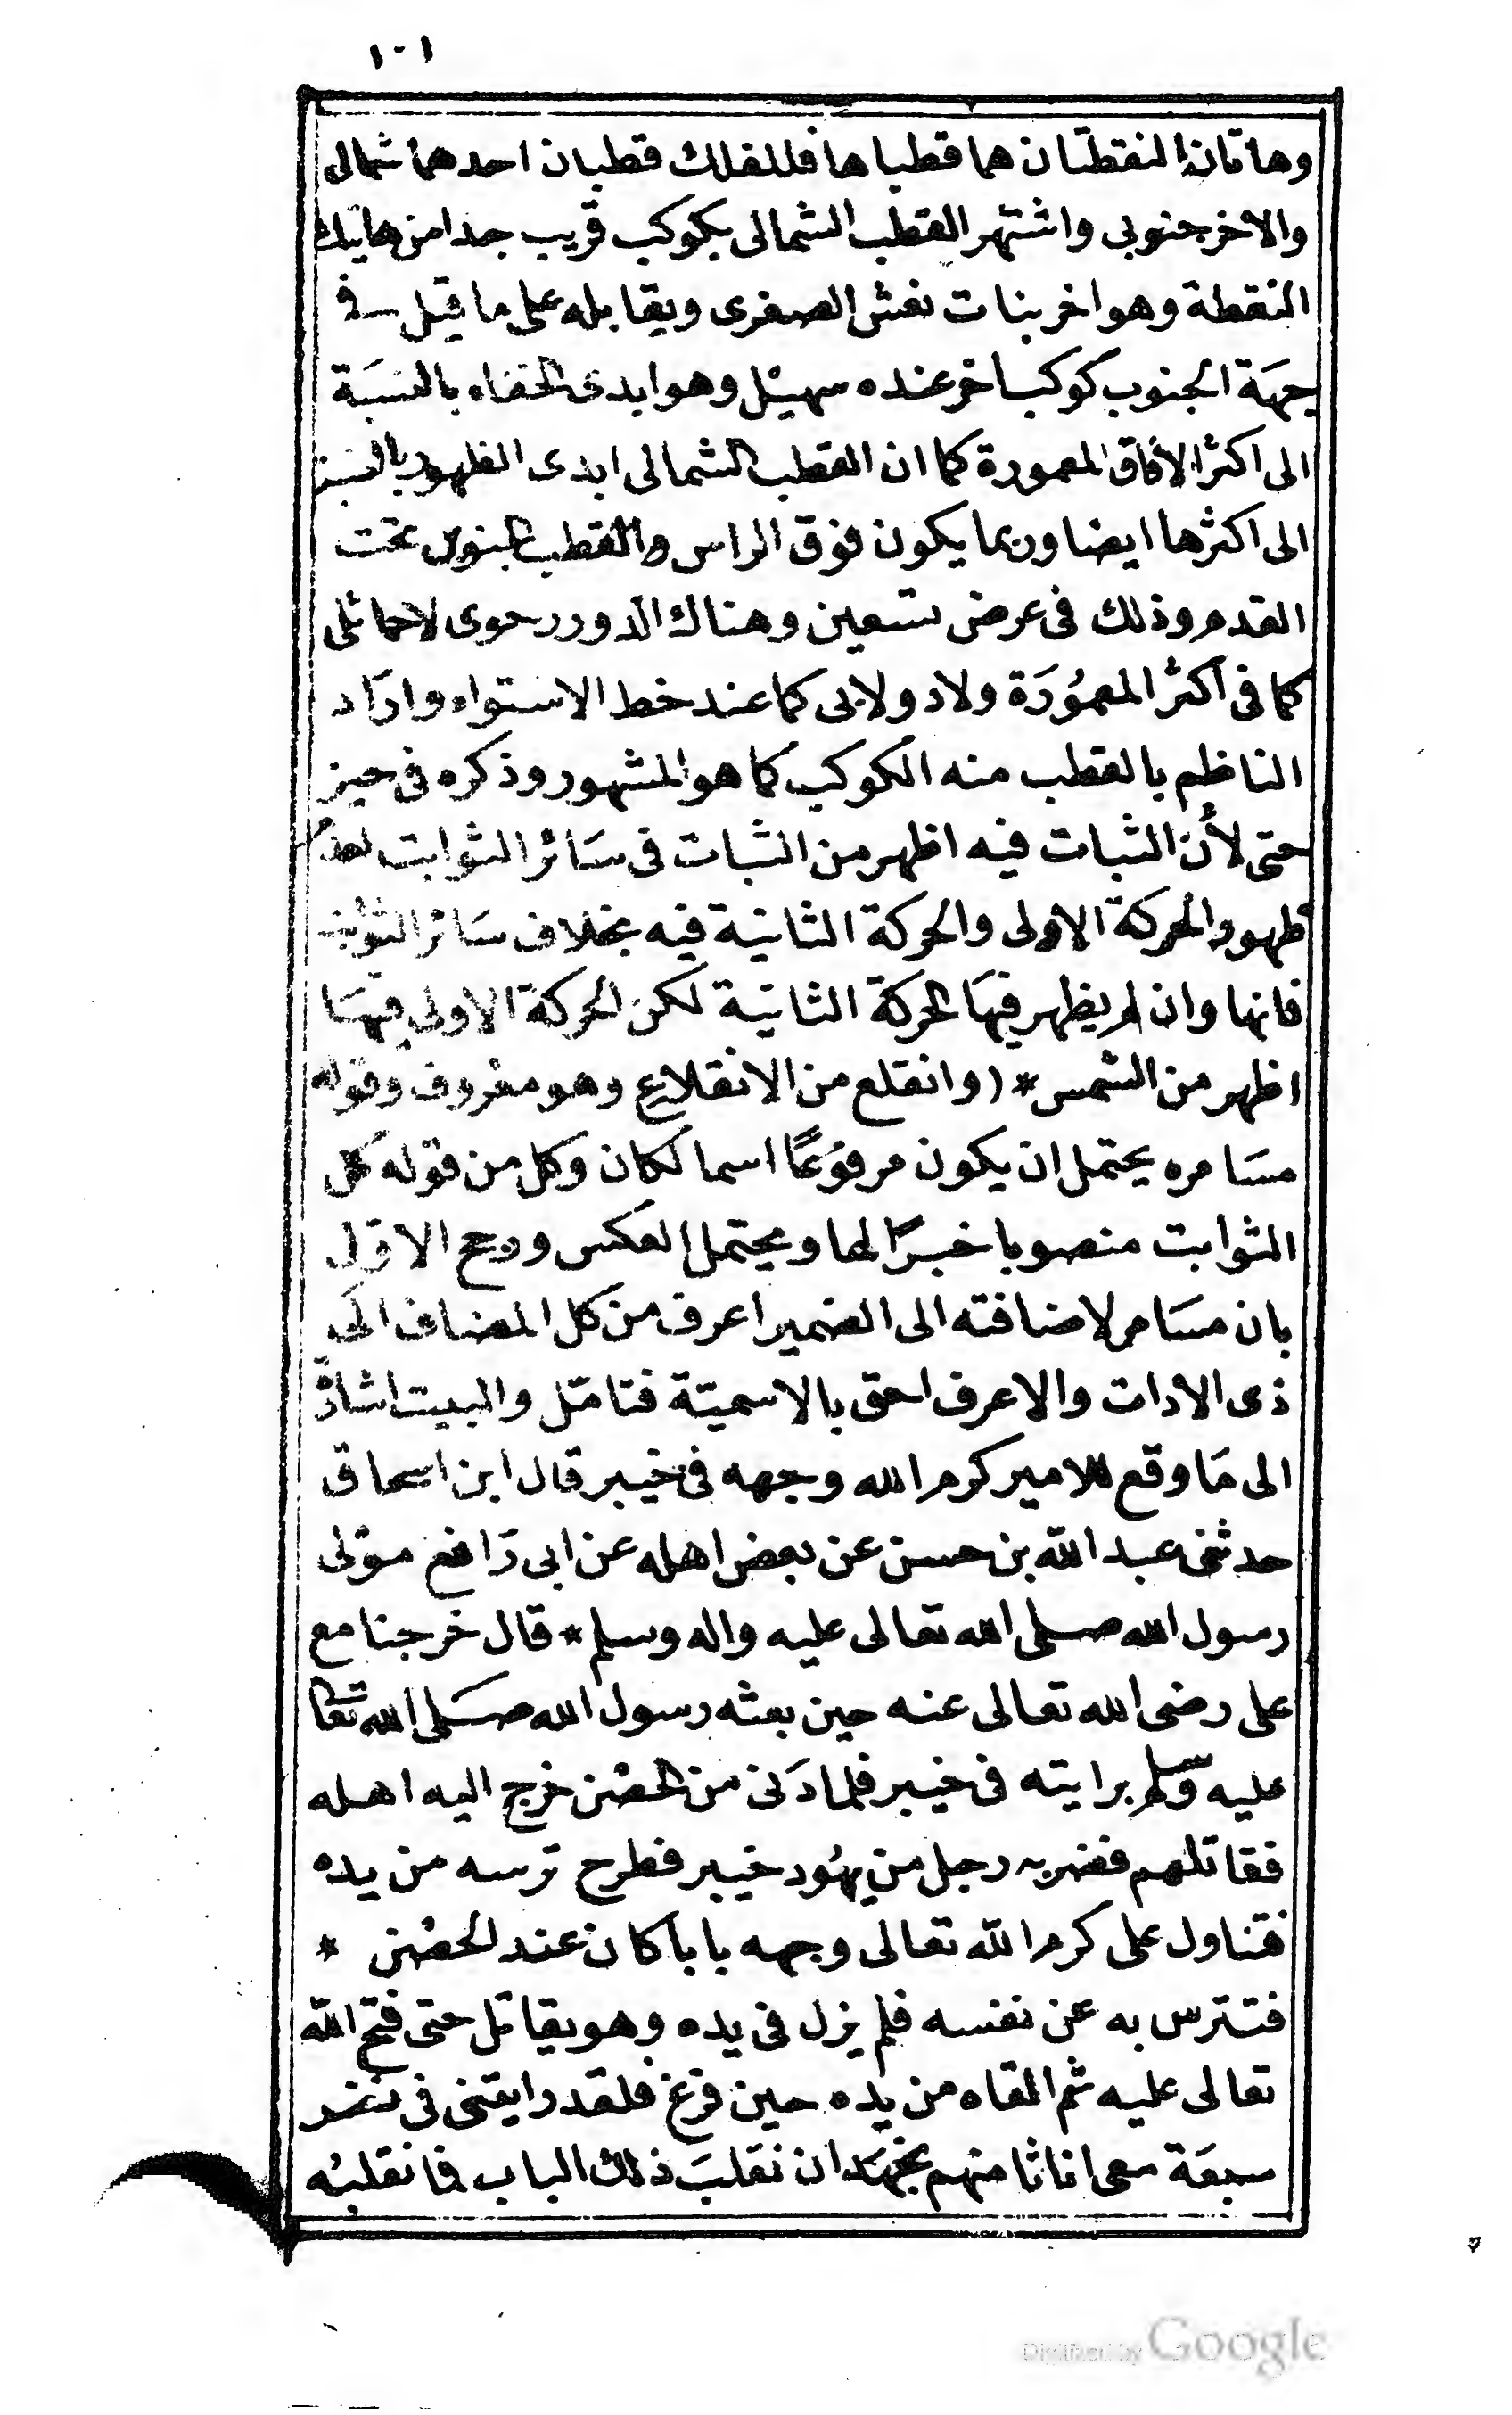 ١٠١
وهاتان النقطتان هما قطباها فللفلك قطبان احدهما شمالى
والاخر جنوبى واشتهر القطب الشمالى بكوكب قريب جدا من هاتيك
النقطة وهو اخر بنات نعش الصغرى ويقابله على ما قيل فى
جهة الجنوب كوكب اخر عنده سهيل وهو ابدى الخفاء بالنسبة
الى اكثر الافاق المعمورة كما ان القطب الشمالى ابدى الظهور بالنسبة
الى اكثرها ايضا وربما يكون فوق الراس والقطب الجنوبى تحت
القدم وذلك فى عرض تسعين وهناك الدور رحوى لا حمائلى
كما فى اكثر المعمُورَة ولا دولابى كما عند خط الاستواء وارَاد
الناظم بالقطب منه الكوكب كما هو المشهور وذكره فى حيز
حتى لأن الثبات فيه اظهر من الثبات فى سَائر الثوابت لعدم
ظهور الحركة الاولى والحركة الثانية فيه بخلاف سَائر الثوابت
فانها وان لم يظهر فيهَا الحركة الثانية لكن الحركة الاولى فيهَا
اظهر من الشمس * (وانقلع من الانقلاع وهو معروف وقوله
مسَامره يحتمل ان يكون مرفوعًا اسما لكان وكل من قوله كل
الثوابت منصوبا خبرًا لها ويحتمل العكس ورجح الاول
بان مسَامر لاضافته الى الضمير اعرف من كل المضاف الى
ذى الادات والاعرف احق بالاسميّة فتامّل والبيت اشارة
الى مَا وقع للامير كرم الله وجهه فى خيبر قال ابن اسحاق
حدثنى عبد الله بن حسن عن بعض اهله عن ابى رَافع مولى
رسول الله صلى الله تعالى عليه واله وسلم * قال خرجنا مع
على رضى الله تعالى عنه حين بعثه رسول الله صَلى الله تعا
عليه وسلم برايته فى خيبر فلما دَنى من الحصْن خرج اليه اهله
فقاتلهم فضربه رجل من يهُود خيبر فطرح ترسه من يده
فتناول على كرم الله تعالى وجهه باباً كان عند الحصْن *
فتترس به عن نفسه فلم يزل فى يده وهو يقاتل حتى فتح الله
تعالى عليه ثم القاه من يده حين فرغ فلقد رايتنى فى نفر
سبعَة معى انا ثامنهم نجهَد ان نقلبَ ذلك الباب فما نقلبُه
Digitized by Google